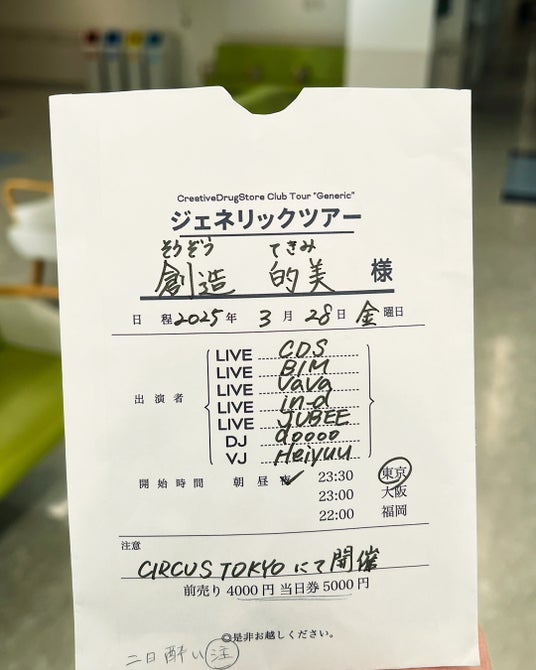 CreativeDrugStore Club Tour "Generic"
ジェネリックツアー
そうぞう てきみ
創造 的美 様
日程 2025年 3月 28日 金曜日
出演者
LIVE CDS
LIVE BIM
LIVE VaVa
LIVE in-d
LIVE JUBEE
DJ doooo
VJ Heiyuu
開始時間 朝 昼 夜 23:30 東京
23:00 大阪
22:00 福岡
注意
CIRCUS TOKYO にて開催
前売り 4000円 当日券 5000円
◎是非お越しください。
二日酔い 注